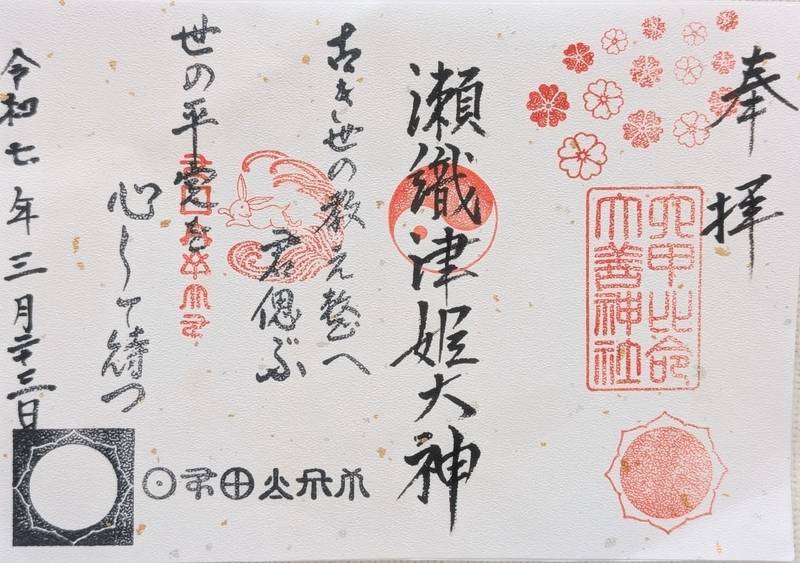 奉拝
六甲比命
大善神社
瀬織津姫大神
古き世の教え整へ
君偲ぶ
世の平
を
心して待つ
令和七年三月二十三日